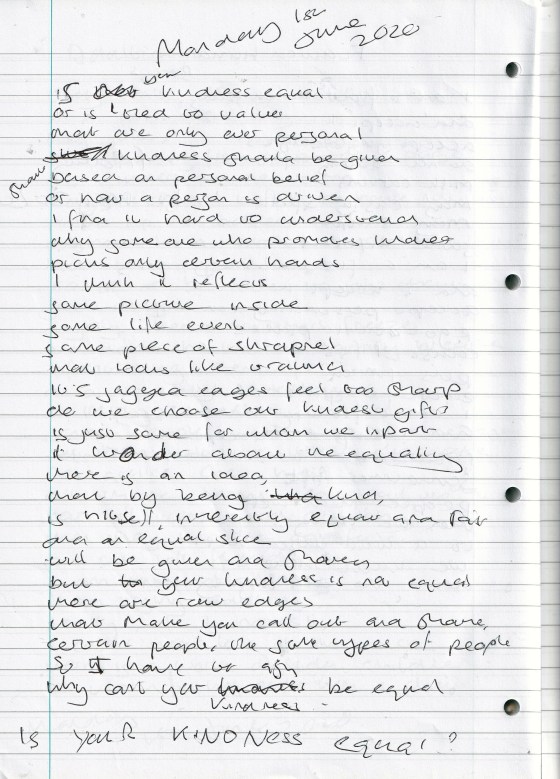 Monday 1st June 2020
is your kindness equal
or is tied to values
that are only ever personal
kindness should be given
based on personal belief
or how a person is driven
I find it hard to understand
why someone who promotes kindness
picks only certain hands
I think it reflects
some picture inside
some life event
some piece of shrapnel
that looks like trauma
it's jagged edges feel too sharp
do we choose our kindest gifts
is just some for whom we impart
it wonder about the equality
there is an idea,
that by being kind,
is itself, inherently equal and fair
and an equal slice
will be given and shared
but your kindness is not equal
there are raw edges
that make you call out and shame,
certain people, the same types of people
So I have to ask
why can't your kindness be equal
Is your KINDNess equal?